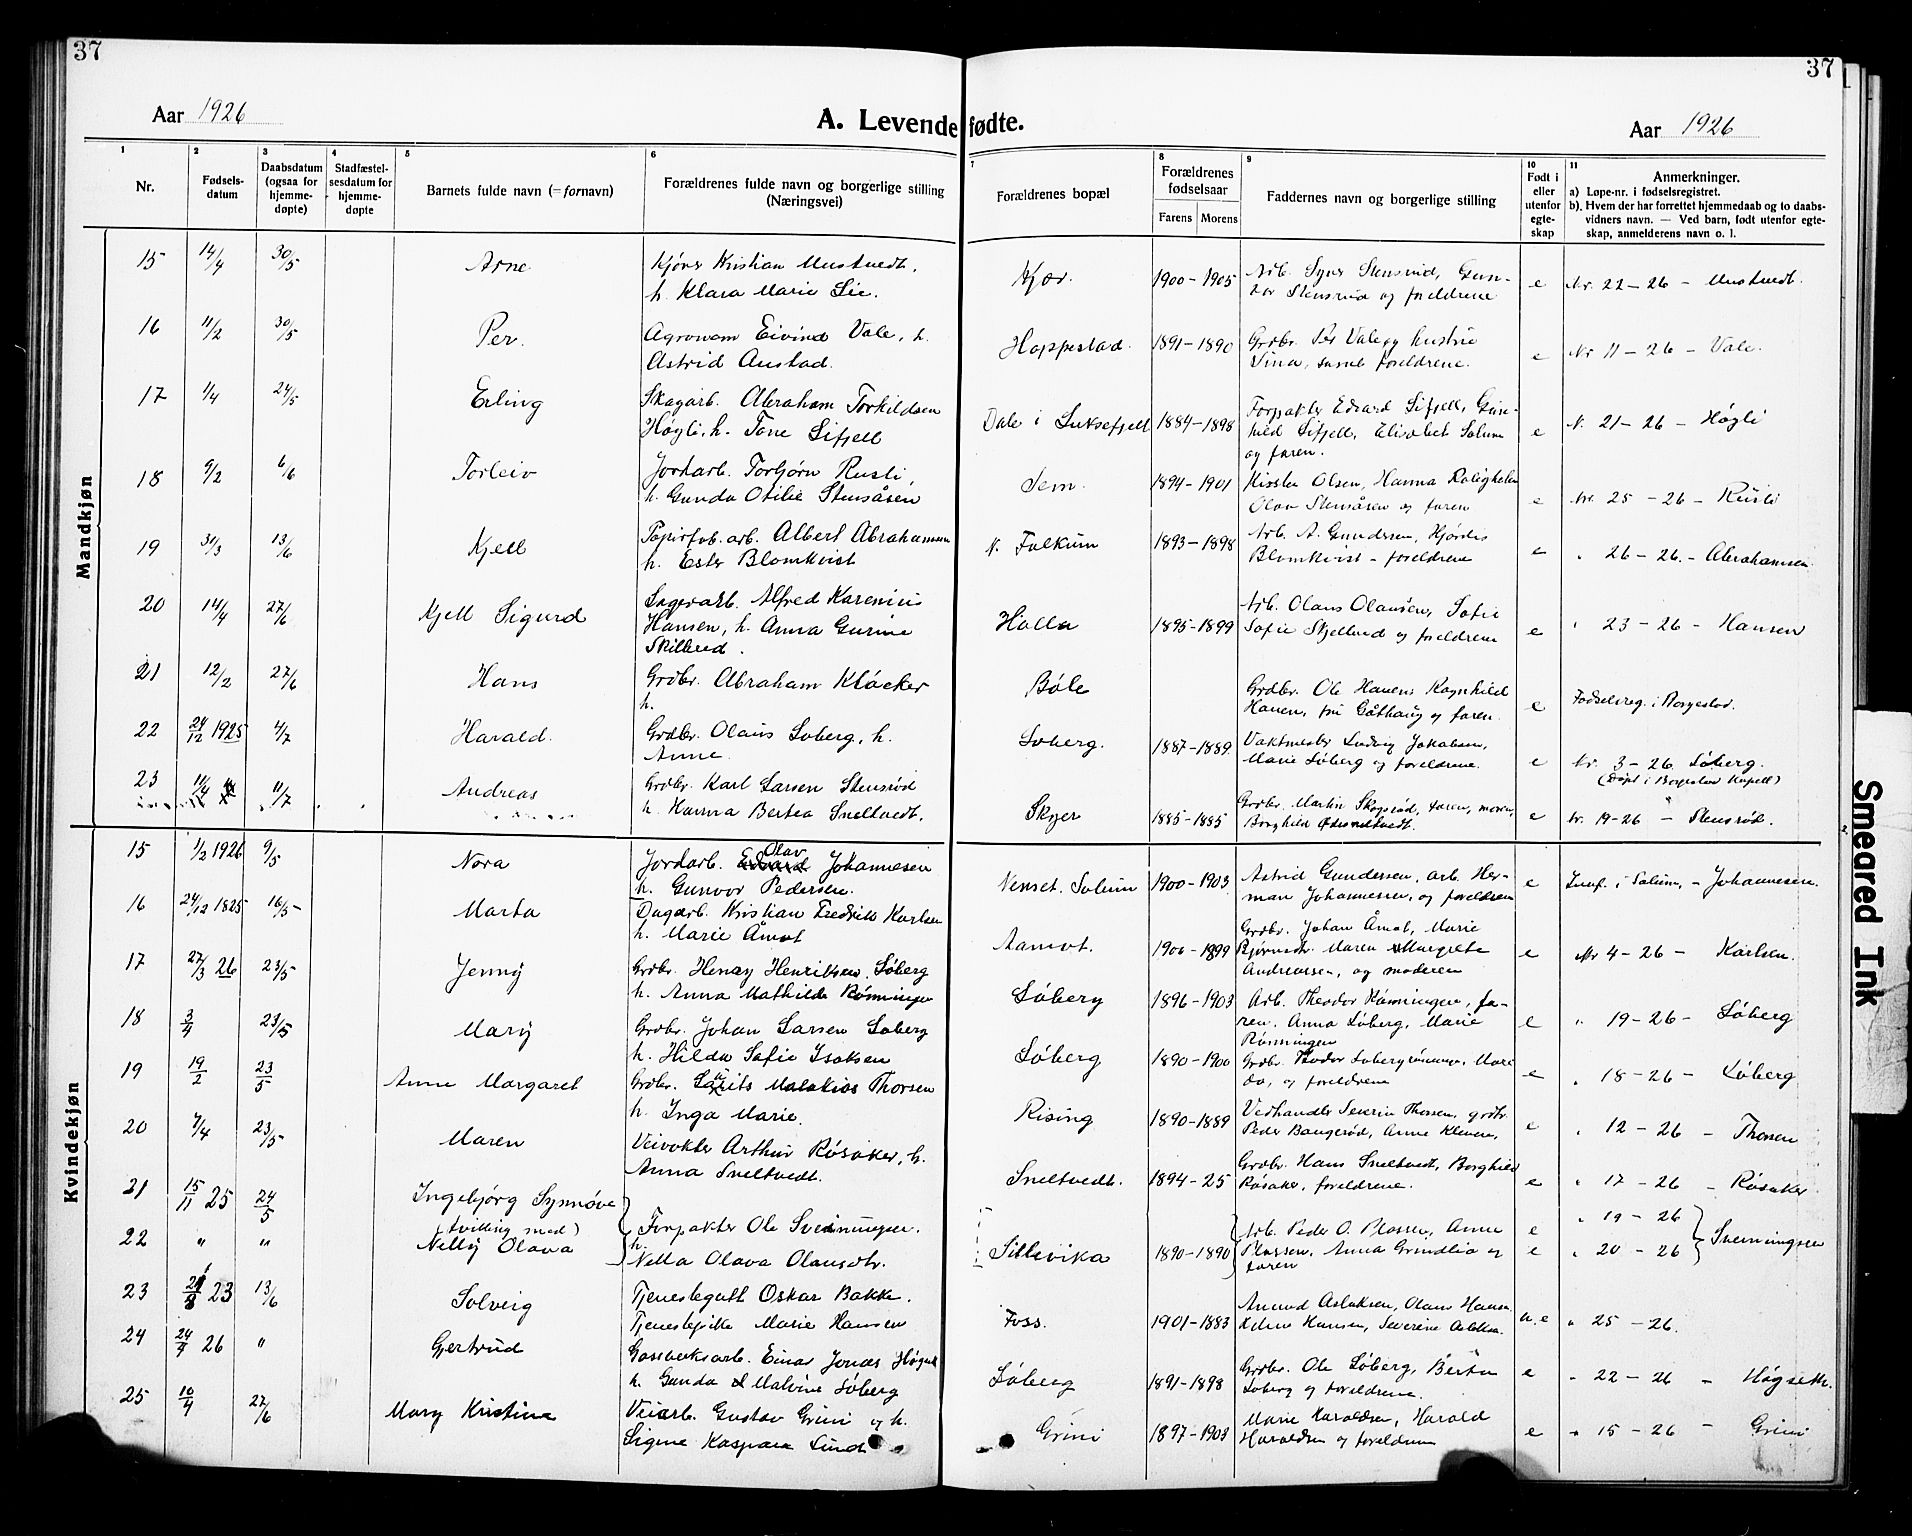 37
37
Aar 1926
A. Levende fødte.
Aar 1926
1
Nr.
2
Fødsels-
datum
3
Daabsdatum
(ogsaa for
hjemme-
døpte)
4
Stadfæstel-
sesdatum for
hjemme-
døpte
5
Barnets fulde navn (= fornavn)
6
Forældrenes fulde navn og borgerlige stilling
(Næringsvei)
7
Forældrenes bopæl
8
Forældrenes
fødselsaar
Farens Morens
9
Faddernes navn og borgerlige stilling
10
Født i
eller
utenfor
egte-
skap
11
Anmerkninger.
a) Løpe-nr. i fødselsregistret.
b) Hvem der har forrettet hjemmedaab og to daabs-
vidners navn. — Ved barn, født utenfor egte-
skap, anmelderens navn o. l.
Mandkjøn
15 14/4 30/5 Arne Kristian
h. Klara Marie Lie. 1900-1905 og foreldrene e Nr. 22-26 -
16 11/2 30/5 Per. Agronom Eivind Vale, h.
Astrid Austad. Hoppestad. 1891-1890 Grdbr. Per Vale og hustru
samt foreldrene. e Nr 11-26 - Vale.
17 1/4 24/5 Erling Skogarb. Abraham Torkildsen
Høgli, h. Tone Lifjell Dale i Luksefjell 1884-1898 Forpakter Edvard Lifjell, Gun-
hild Lifjell, Elisabet Solum
og faren. e N. 21-26 - Høgli
18 9/2 6/6 Torleiv Jordarb. Torbjørn Rusli,
h. Gunda Otilie Stensåsen Sem. 1894-1901 Olsen, Hanna Roligheten
Olav Stensåsen og faren e Nr. 25-26 - Rusli
19 31/3 13/6 Kjell Papirfab. arb. Albert Abrahamsen
h. Ester Blomkvist N. Falkum 1893-1898 Arb. A. Gundersen, Hjørdis
Blomkvist - foreldrene e " 26-26. - Abrahamsen
20 14/4 27/6 Kjell Sigurd Sagarb. Alfred Karenius
Hansen, h. Anna Gurine
Skilbred. Holla 1895-1899 Arb. Olaus Olausen, Sofie
Sofie og foreldrene e " 23-26 - Hansen
21 12/2 27/6 Hans Grdbr. Abraham Kløcker
h. Bøle Grdbr. Ole Hauen, Ragnhild
Hauen, fru og faren. e Fødselsreg. i Borgestad.
22 24/12 1925 4/7 Harald. Grdbr. Olaus Løberg, h.
Anne. Løberg. 1887-1889 Vaktmester Ludvig Jakobsen,
Marie Løberg og foreldrene. e Nr. 3-26 Løberg.
(Døpt i Borgestad Kapell)
23 11/4 11/7 Andreas Grdbr. Karl Larsen Stensrød
h. Hanna Bertea Sneltvedt. 1885-1885 Grdbr. Martin faren, moren,
Borghild Sneltvedt. e Nr. 19-26 - Stensrød.
Kvindekjøn
15 1/2 1926 9/5 Nora Jordarb. Olav Johannesen
h. Gunvor Pedersen. Solum 1900-1903 Astrid Gundersen, arb. Her-
man Johannesen, og foreldrene e i Solum, - Johannesen.
16 24/12 1825 16/5 Marta Dagarb. Kristian Fredrik Karlsen
h. Marie Åmot Aamot. 1900-1899 Grdbr. Johan Åmot, Marie
Maren Margrete
Andreassen, og moderen e Nr 4-26 - Karlsen.
17 27/3 26 23/5 Jenny Grdbr. Henry Henriksen Løberg
h. Anna Mathilde Rønningen Løberg 1896-1903 Arb. Theodor Rønningen, fa-
ren, Anna Løberg, Marie
Rønningen e " 19-26 - Løberg
18 3/4 23/5 Mary Grdbr. Johan Larsen Løberg
h. Hilda Sofie Isaksen Løberg 1890-1900 Grdbr.
og foreldrene e " 18-26 - Løberg
19 19/2 23/5 Anne Margaret Grdbr. Malakias Thorsen
h. Inga Marie. Rising 1890-1889 Vedhandler Severin Thorsen, grdbr.
Peder Baugerød, Anne Kleven, e " 12-26 - Thorsen
20 7/4 23/5 Maren Veivokter Arthur Røsaker, h.
Anna Sneltvedt. Sneltvedt. 1894-25 Grdbr. Hans Sneltvedt, Borghild
Røsaker, foreldrene. e " 17-26 - Røsaker
21 15/11 25 24/5 Ingebjørg Synnøve
(tvilling med) Forpakter Ole Sveinungsen.
h. Arb. Peder O. Plassen, Anne e " 19-26
22 " " Nelly Olava Nella Olava Olausdtr. 1890-1890 Plassen, Anna Grindlia og
faren e " 20-26 Sveinungsen
23 23 13/6 Solveig Tjenestegutt Oskar Bakke.
Tjenestepike Marie Hansen Foss. 1901-1883 Aslaksen, Olaus Hansen
Hansen, Severine u.e " 25-26.
24 24/4 26 " Gertrud Gassverksarb. Einar Jonas
h. Gunda Malvine Løberg Løberg 1891-1898 Grdbr. Ole Løberg, Berta
Løberg og foreldrene. e " 22-26 -
25 10/4 27/6 Mary Kristine Veiarb. Gustav Grini og h.
Signe Kaspara Lund Grini 1897-1903 Marie Haraldsen, Harald
Haraldsen og foreldrene e " 15-26 - Grini
Smeared Ink